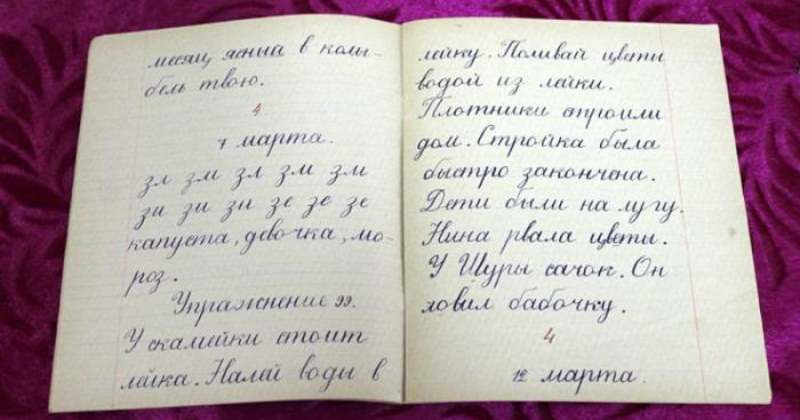 месяц ясный в колы-
бель твою.
4
7 марта.
зл зм зл зм зм
зи зи зи зе зе зе
капуста, девочка, мо-
роз.
Упражнение 99.
У скамейки стоит
лейка. Налей воды в
лейку. Поливай цветы
водой из лейки.
Плотники строили
дом. Стройка была
быстро закончена.
Дети были на лугу.
Нина рвала цветы.
У Шуры сачок. Он
ловил бабочку.
4
12 марта.